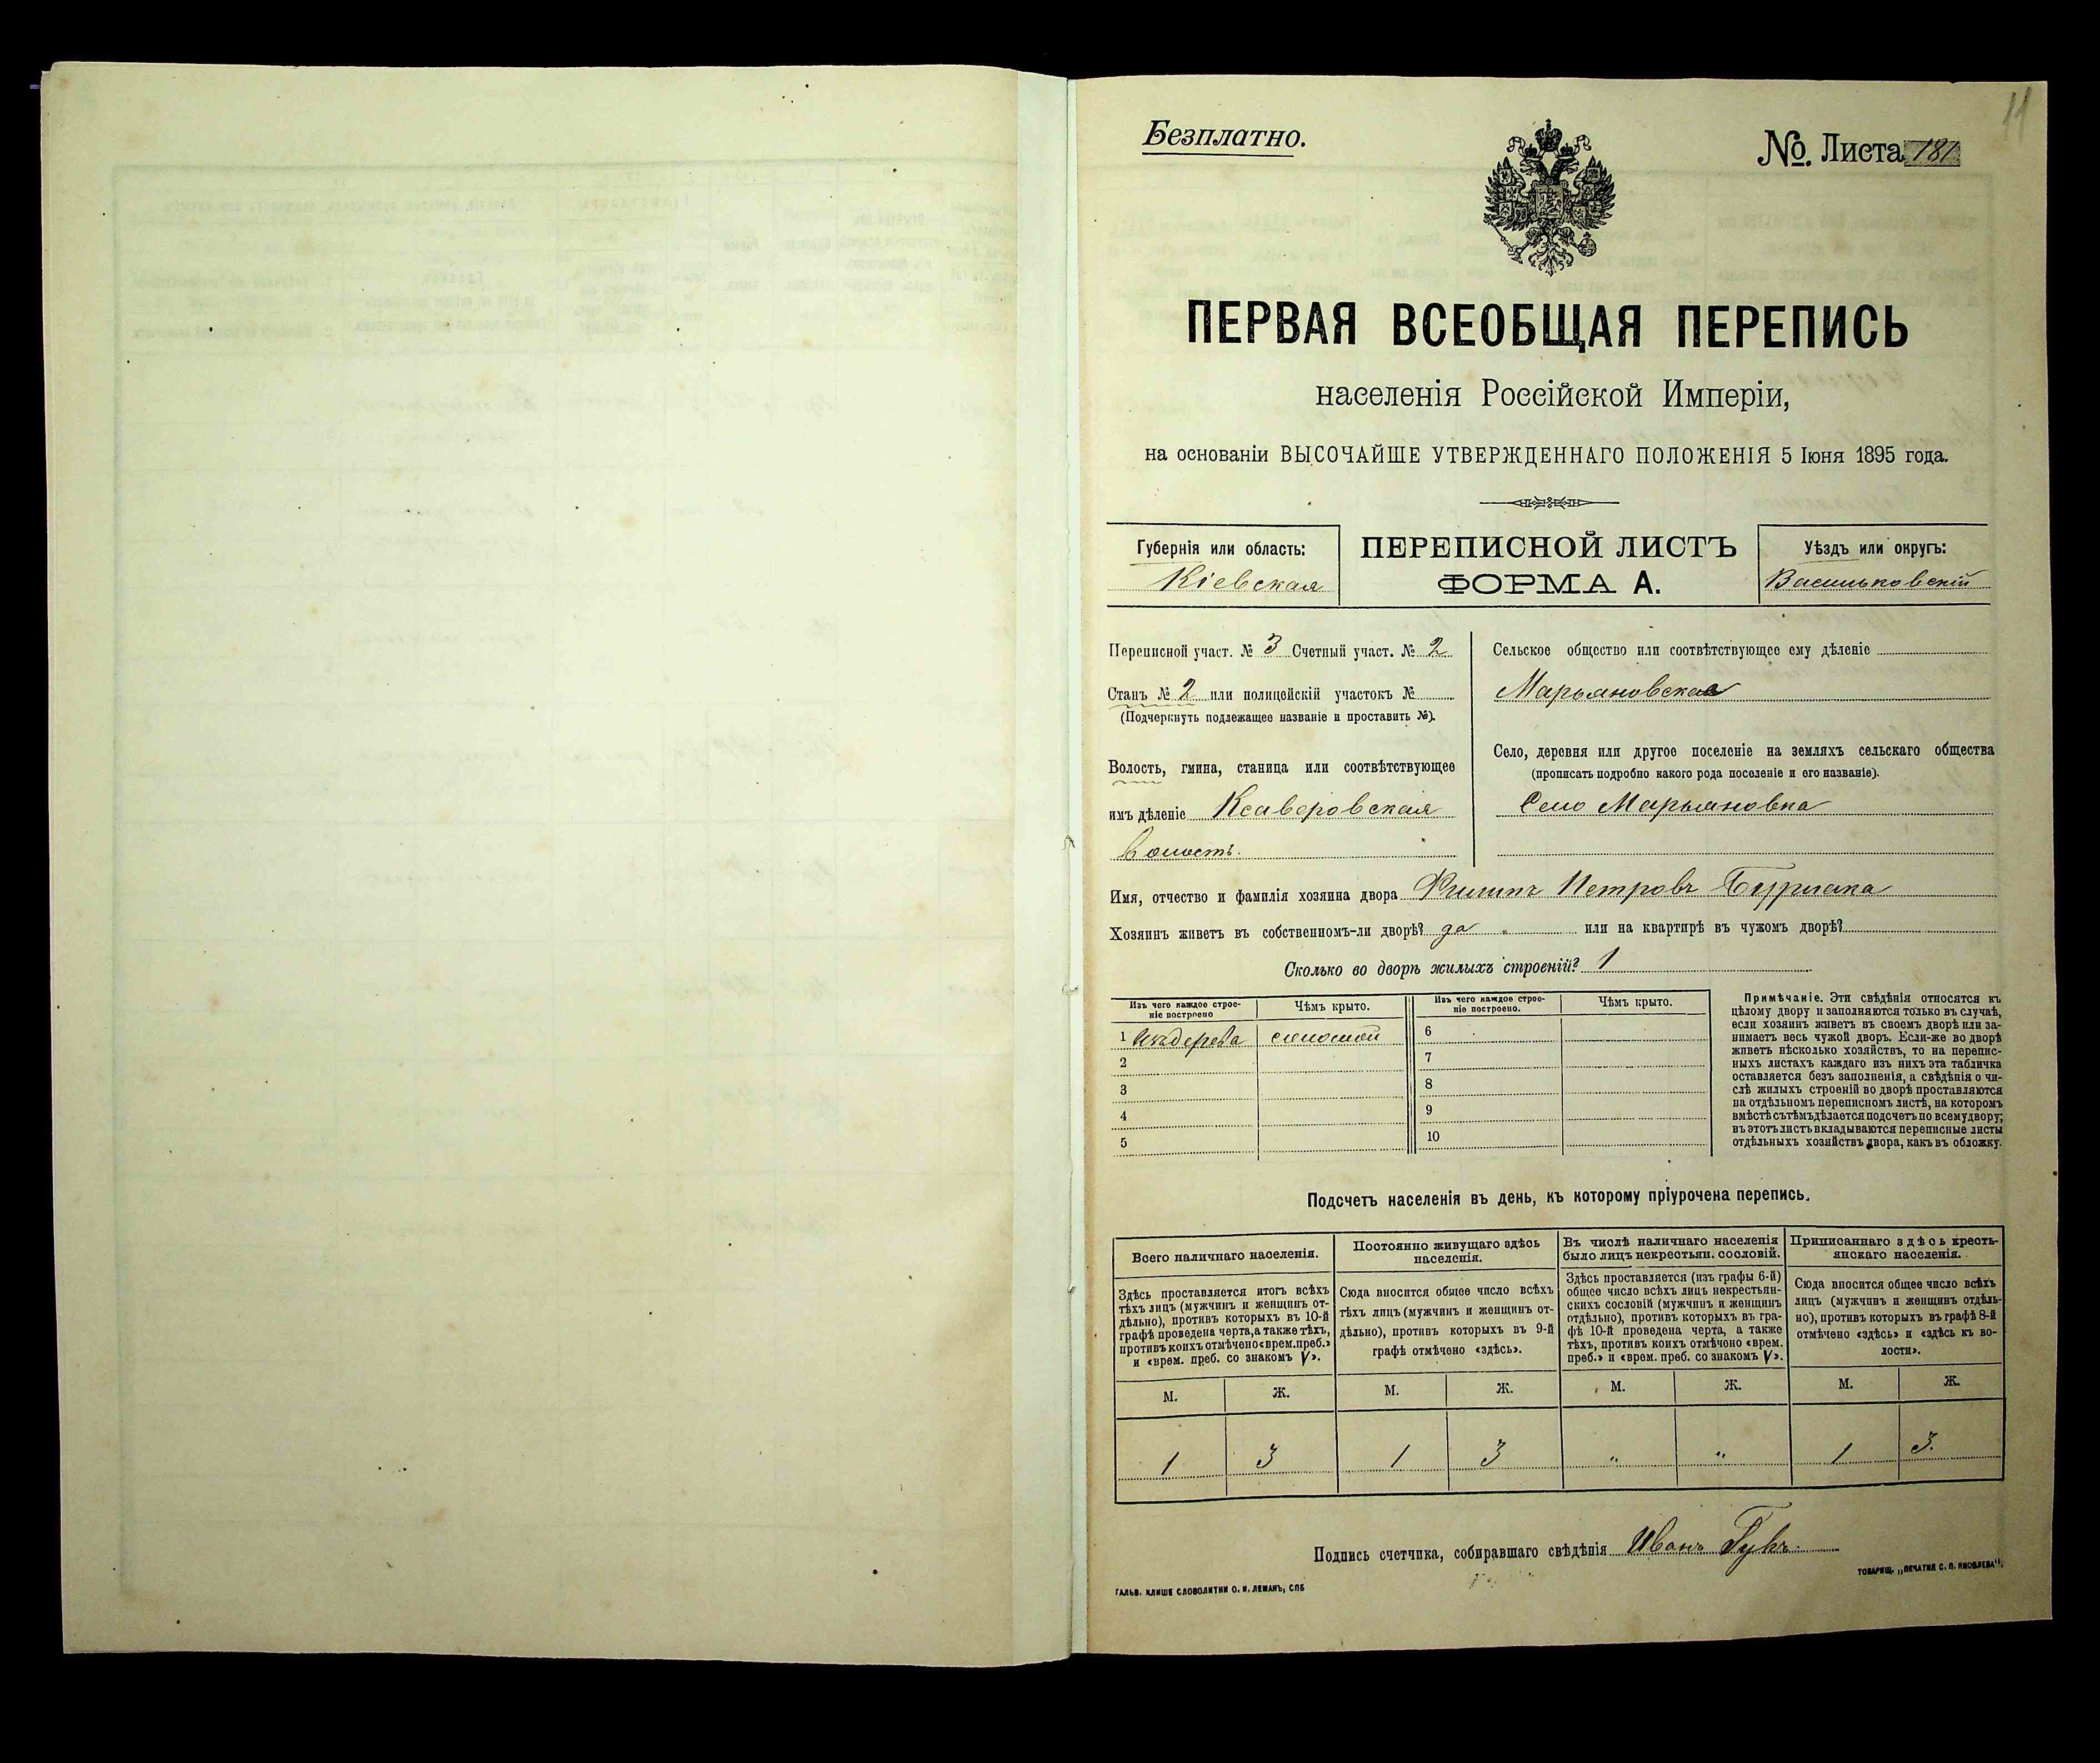 11
Безплатно.
№. Листа 181
ПЕРВАЯ ВСЕОБЩАЯ ПЕРЕПИСЬ
населенія Россійской Имперіи,
на основаніи ВЫСОЧАЙШЕ УТВЕРЖДЕННАГО ПОЛОЖЕНІЯ 5 Іюня 1895 года.
Губернія или область:
Кіевская
ПЕРЕПИСНОЙ ЛИСТЪ
ФОРМА А.
Уѣздъ или округъ:
Васильковскій
Переписной участ. № 3 Счетный участ. № 2
Станъ № 2 или полицейскій участокъ №
(Подчеркнуть подлежащее названіе и проставить №).
Волость, гмина, станица или соотвѣтствующее
имъ дѣленіе Ксаверовская
волость.
Сельское общество или соотвѣтствующее ему дѣленіе
Марьяновская
Село, деревня или другое поселеніе на земляхъ сельскаго общества
(прописать подробно какого рода поселеніе и его названіе).
Село Марьяновка
Имя, отчество и фамилія хозяина двора Филипъ Петровъ Бурлака
Хозяинъ живетъ въ собственномъ-ли дворѣ? да или на квартирѣ въ чужомъ дворѣ?
Сколько во дворѣ жилыхъ строеній? 1
Изъ чего каждое строе-
ніе построено
Чѣмъ крыто.
Изъ чего каждое строе-
ніе построено.
Чѣмъ крыто.
1 изъ дерева соломой
2
3
4
5
6
7
8
9
10
Примѣчаніе. Эти свѣдѣнія относятся къ
цѣлому двору и заполняются только въ случаѣ,
если хозяинъ живетъ въ своемъ дворѣ или за-
нимаетъ весь чужой дворъ. Если-же во дворѣ
живетъ нѣсколько хозяйствъ, то на перепис-
ныхъ листахъ каждаго изъ нихъ эта табличка
оставляется безъ заполненія, а свѣдѣнія о чи-
слѣ жилыхъ строеній во дворѣ проставляются
на отдѣльномъ переписномъ листѣ, на которомъ
вмѣстѣ съ тѣмъ дѣлается подсчетъ по всему двору;
въ этотъ листъ вкладываются переписные листы
отдѣльныхъ хозяйствъ двора, какъ въ обложку.
Подсчетъ населенія въ день, къ которому пріурочена перепись.
Всего наличнаго населенія.
Здѣсь проставляется итогъ всѣхъ
тѣхъ лицъ (мужчинъ и женщинъ от-
дѣльно), противъ которыхъ въ 10-й
графѣ проведена черта, а также тѣхъ,
противъ коихъ отмѣчено «врем. преб.»
и «врем. преб. со знакомъ V».
Постоянно живущаго здѣсь
населенія.
Сюда вносится общее число всѣхъ
тѣхъ лицъ (мужчинъ и женщинъ от-
дѣльно), противъ которыхъ въ 9-й
графѣ отмѣчено «здѣсь».
Въ числѣ наличнаго населенія
было лицъ некрестьян. сословій.
Здѣсь проставляется (изъ графы 6-й)
общее число всѣхъ лицъ некрестьян-
скихъ сословій (мужчинъ и женщинъ
отдѣльно), противъ которыхъ въ гра-
фѣ 10-й проведена черта, а также
тѣхъ, противъ коихъ отмѣчено «врем.
преб.» и «врем. преб. со знакомъ V».
Приписаннаго здѣсь кресть-
янскаго населенія.
Сюда вносится общее число всѣхъ
лицъ (мужчинъ и женщинъ отдѣль-
но), противъ которыхъ въ графѣ 8-й
отмѣчено «здѣсь» и «здѣсь къ во-
лости».
М. Ж. М. Ж. М. Ж. М. Ж.
1 3 1 3 " " 1 3.
Подпись счетчика, собиравшаго свѣдѣнія Иванъ Гукъ.
ГАЛЬВ. КЛИШЕ СЛОВОЛИТНИ О. И. ЛЕМАНЪ, СПБ
ТОВАРИЩ. „ПЕЧАТНЯ С. П. ЯКОВЛЕВА".